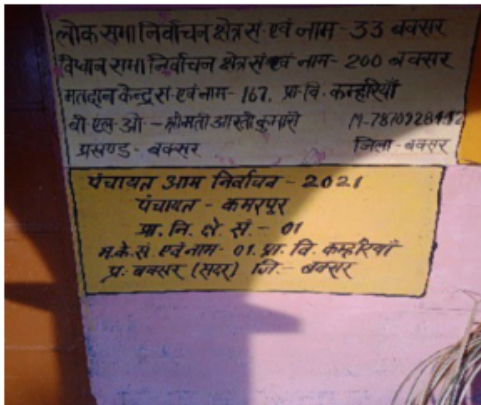 लोक सभा निर्वाचन क्षेत्र सं एवं नाम - 33 बक्सर
विधान सभा निर्वाचन क्षेत्र सं एवं नाम - 200 बक्सर
मतदान केन्द्र सं एवं नाम - 167, प्रा. वि. कम्हरियाँ
बी एल ओ - श्रीमती आरती कुमारी
प्रखण्ड - बक्सर जिला - बक्सर
पंचायत आम निर्वाचन - 2021
पंचायत - कमरपुर
प्रा. नि. क्षे. सं. - 01
म. के. सं. एवं नाम - 01. प्रा. वि. कम्हरियाँ
प्र. बक्सर (सदर) जि. - बक्सर